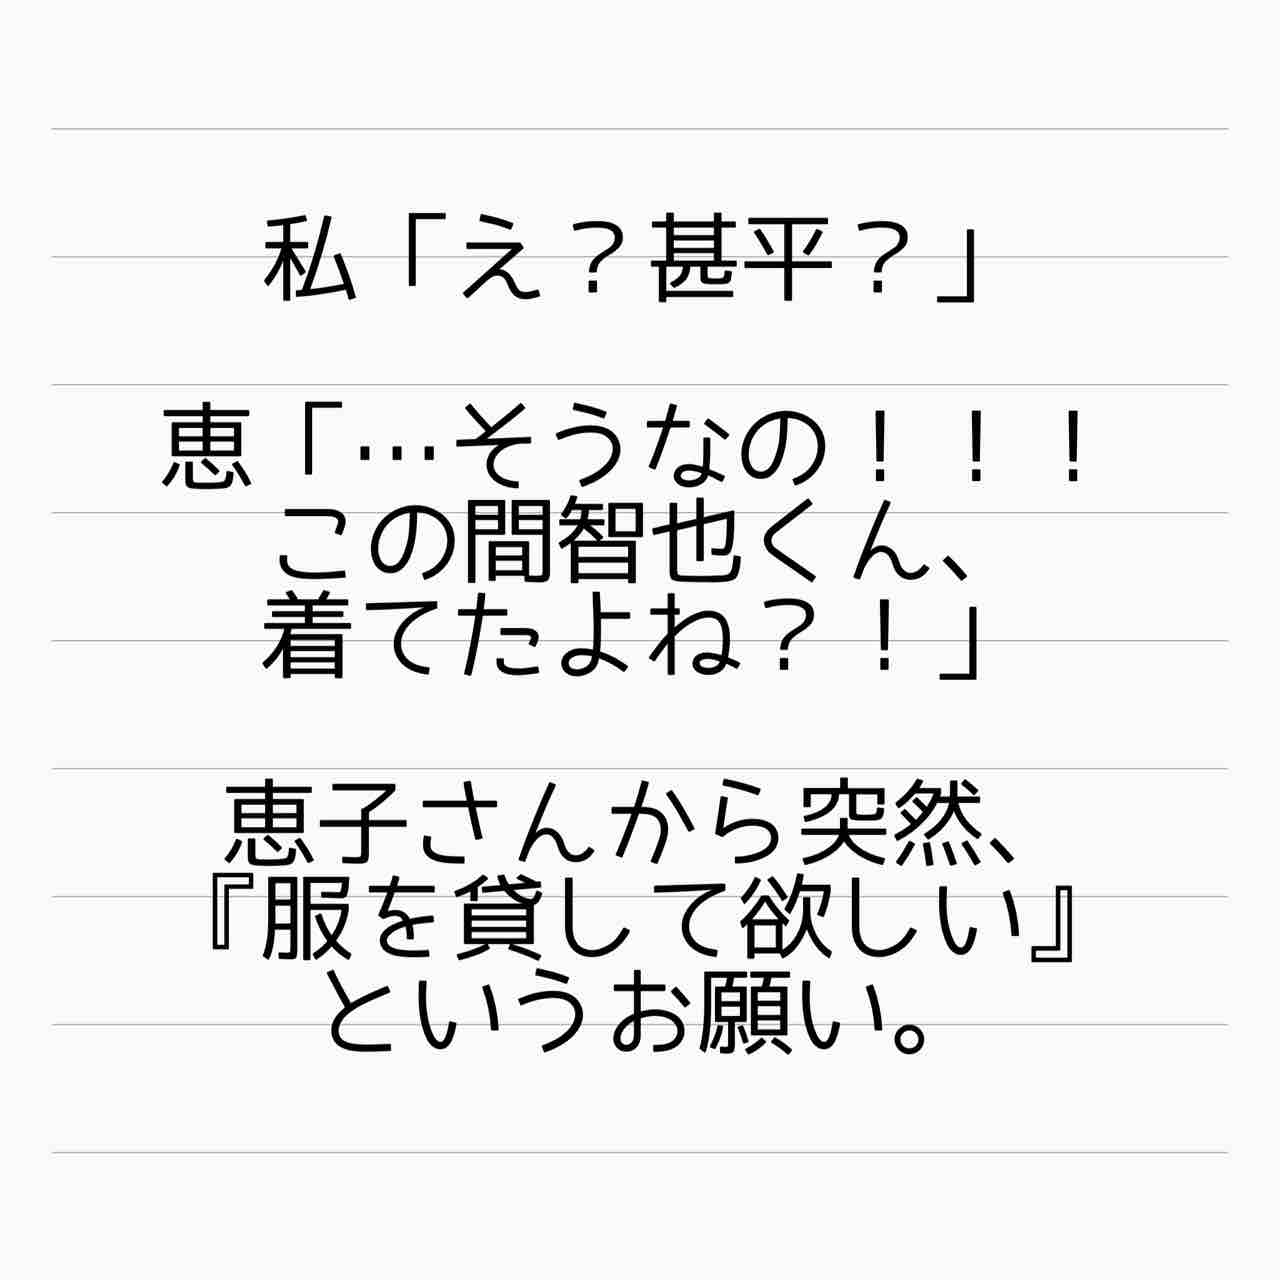 私「え？甚平？」
恵「…そうなの！！！
この間智也くん、
着てたよね？！」
恵子さんから突然、
『服を貸して欲しい』
というお願い。